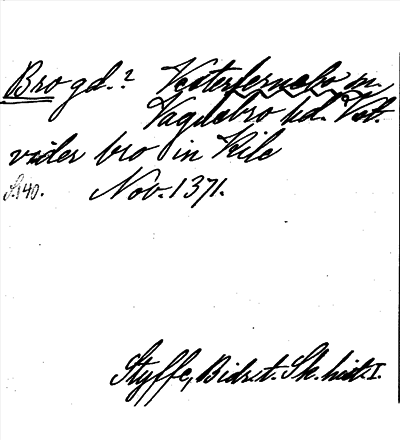 Bro gd.? Vesterfernebo sn.
Vagnsbro hd. Vstm.
vider bro in Kile
S. 140. Nov. 1371.
Styffe, Bidr. t. Sk. hist. I.